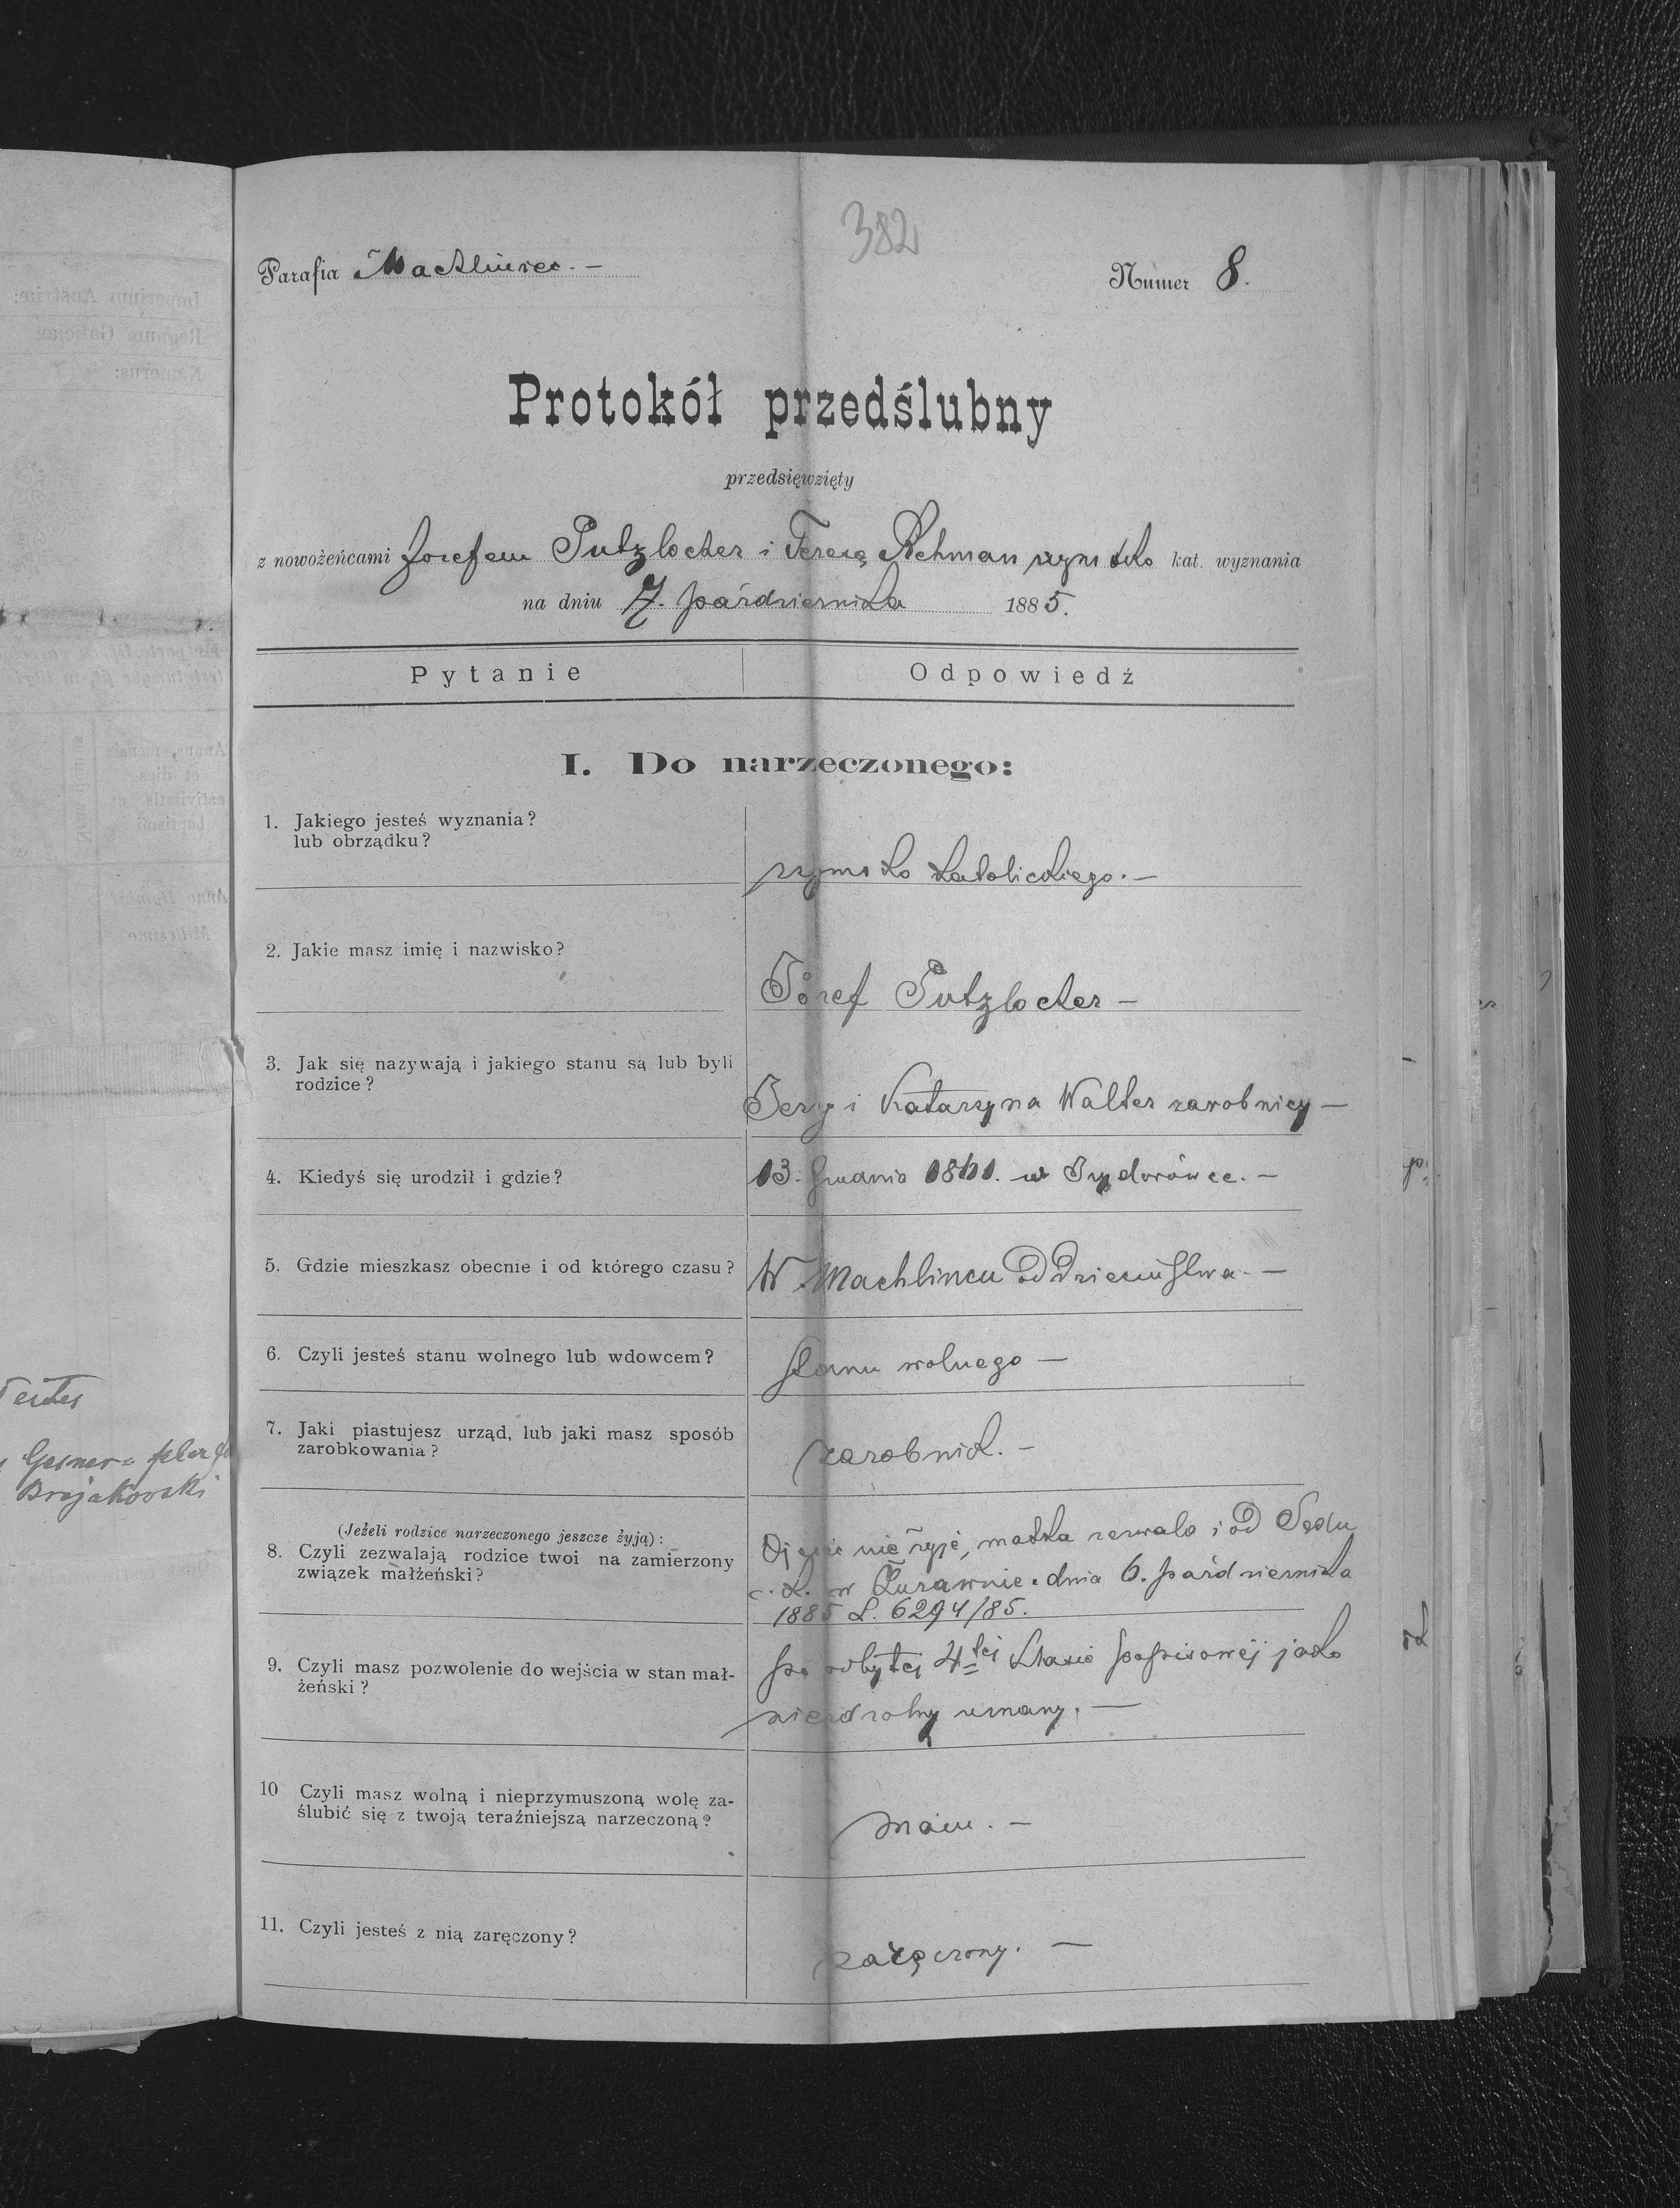 382
Parafia Machliniec. —
Numer 8.
Protokół przedślubny
przedsięwzięty
z nowożeńcami Józefem Putzlocher i Teresą Rehman rzymsko kat. wyznania
na dniu 7. października 1885.
Pytanie
Odpowiedź
I. Do narzeczonego:
1. Jakiego jesteś wyznania?
lub obrządku?
rzymsko katolickiego. —
2. Jakie masz imię i nazwisko?
Józef Putzlocher —
3. Jak się nazywają i jakiego stanu są lub byli
rodzice?
Jerzy i Katarzyna Walter zarobnicy —
4. Kiedyś się urodził i gdzie?
13. Grudnia w Izydorówce. —
5. Gdzie mieszkasz obecnie i od którego czasu?
W Machlińcu od dzieciństwa. —
6. Czyli jesteś stanu wolnego lub wdowcem?
stanu wolnego —
7. Jaki piastujesz urząd, lub jaki masz sposób
zarobkowania?
zarobnik. —
(Jeżeli rodzice narzeczonego jeszcze żyją):
8. Czyli zezwalają rodzice twoi na zamierzony
związek małżeński?
Ojciec nie żyje, matka zezwala i od Sądu
c. k. w Żurawnie dnia 6. października
1885 L. 6294/85.
9. Czyli masz pozwolenie do wejścia w stan mał-
żeński?
po odbytej 4tej klasie popisowéj jako
niezdolny uznany. —
10 Czyli masz wolną i nieprzymuszoną wolę za-
ślubić się z twoją teraźniejszą narzeczoną?
mam. —
11. Czyli jesteś z nią zaręczony?
zaręczony. —